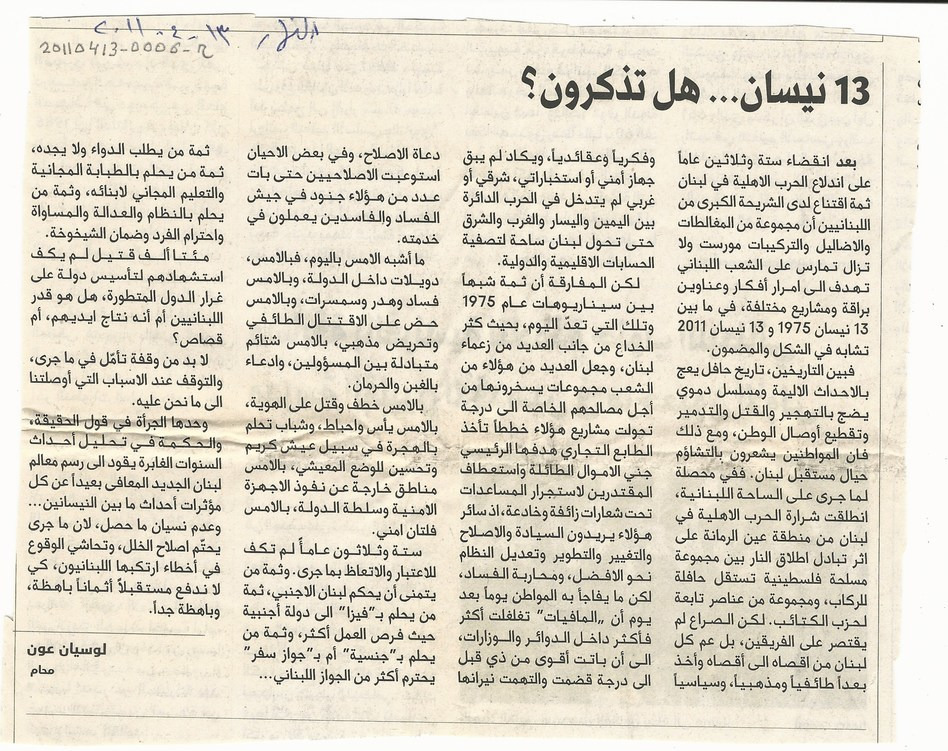 النهار ١٣-٤-٢٠١١
20110413-0006-R
13 نيسان... هل تذكرون؟
بعد انقضاء ستة وثلاثين عاماً
على اندلاع الحرب الاهلية في لبنان
ثمة اقتناع لدى الشريحة الكبرى من
اللبنانيين أن مجموعة من المغالطات
والاضاليل والتركيبات مورست ولا
تزال تمارس على الشعب اللبناني
تهدف الى امرار أفكار وعناوين
براقة ومشاريع مختلفة، في ما بين
13 نيسان 1975 و 13 نيسان 2011
تشابه في الشكل والمضمون.
فبين التاريخين، تاريخ حافل يعج
بالاحداث الاليمة ومسلسل دموي
يضج بالتهجير والقتل والتدمير
وتقطيع أوصال الوطن، ومع ذلك
فان المواطنين يشعرون بالتشاؤم
حيال مستقبل لبنان. ففي محصلة
لما جرى على الساحة اللبنانية،
انطلقت شرارة الحرب الاهلية في
لبنان من منطقة عين الرمانة على
اثر تبادل اطلاق النار بين مجموعة
مسلحة فلسطينية تستقل حافلة
للركاب، ومجموعة من عناصر تابعة
لحزب الكتائب. لكن الصراع لم
يقتصر على الفريقين، بل عم كل
لبنان من اقصاه الى أقصاه وأخذ
بعداً طائفياً ومذهبياً، وسياسياً
وفكرياً وعقائدياً، ويكاد لم يبق
جهاز أمني أو استخباراتي، شرقي أو
غربي لم يتدخل في الحرب الدائرة
بين اليمين واليسار والغرب والشرق
حتى تحول لبنان ساحة لتصفية
الحسابات الاقليمية والدولية.
لكن المفارقة أن ثمة شبهاً
بين سيناريوهات عام 1975
وتلك التي تعدّ اليوم، بحيث كثر
الخداع من جانب العديد من زعماء
لبنان، وجعل العديد من هؤلاء من
الشعب مجموعات يسخرونها من
أجل مصالحهم الخاصة الى درجة
تحولت مشاريع هؤلاء خططاً تأخذ
الطابع التجاري هدفها الرئيسي
جني الاموال الطائلة واستعطاف
المقتدرين لاستجرار المساعدات
تحت شعارات زائفة وخادعة، اذ سائر
هؤلاء يريدون السيادة والاصلاح
والتغيير والتطوير وتعديل النظام
نحو الافضل، ومحاربة الفساد،
لكن ما يفاجأ به المواطن يوماً بعد
يوم أن "المافيات" تغلغلت أكثر
فأكثر داخل الدوائر والوزارات،
الى أن باتت أقوى من ذي قبل
الى درجة قضمت والتهمت نيرانها
دعاة الاصلاح، وفي بعض الاحيان
استوعبت الاصلاحيين حتى بات
عدد من هؤلاء جنود في جيش
الفساد والفاسدين يعملون في
خدمته.
ما أشبه الامس باليوم، فبالامس،
دويلات داخل الدولة، وبالامس
فساد وهدر وسمسرات، وبالامس
حض على الاقتتال الطائفي
وتحريض مذهبي، بالامس شتائم
متبادلة بين المسؤولين، وادعاء
بالغبن والحرمان.
بالامس خطف وقتل على الهوية،
بالامس يأس وأحباط، وشباب تحلم
بالهجرة في سبيل عيش كريم
وتحسين للوضع المعيشي، بالامس
مناطق خارجة عن نفوذ الاجهزة
الامنية وسلطة الدولة، بالامس
فلتان امني.
ستة وثلاثون عاماً لم تكف
للاعتبار والاتعاظ بما جرى. وثمة من
يتمنى أن يحكم لبنان الاجنبي، ثمة
من يحلم بـ"فيزا" الى دولة أجنبية
حيث فرص العمل أكثر، وثمة من
يحلم بـ"جنسية" أم بـ"جواز سفر"
يحترم أكثر من الجواز اللبناني...
ثمة من يطلب الدواء ولا يجده،
ثمة من يحلم بالطبابة المجانية
والتعليم المجاني لابنائه، وثمة من
يحلم بالنظام والعدالة والمساواة
واحترام الفرد وضمان الشيخوخة.
مئتا ألف قتيل لم يكف
استشهادهم لتأسيس دولة على
غرار الدول المتطورة، هل هو قدر
اللبنانيين أم أنه نتاج ايديهم، أم
قصاص؟
لا بد من وقفة تأمّل في ما جرى،
والتوقف عند الاسباب التي أوصلتنا
الى ما نحن عليه.
وحدها الجرأة في قول الحقيقة،
والحكمة في تحليل أحداث
السنوات الغابرة يقود الى رسم معالم
لبنان الجديد المعافى بعيداً عن كل
مؤثرات أحداث ما بين النيسانين...
وعدم نسيان ما حصل، لان ما جرى
يحتّم اصلاح الخلل، وتحاشي الوقوع
في أخطاء ارتكبها اللبنانيون، كي
لا ندفع مستقبلاً أثماناً باهظة،
وباهظة جداً.
لوسيان عون
محام